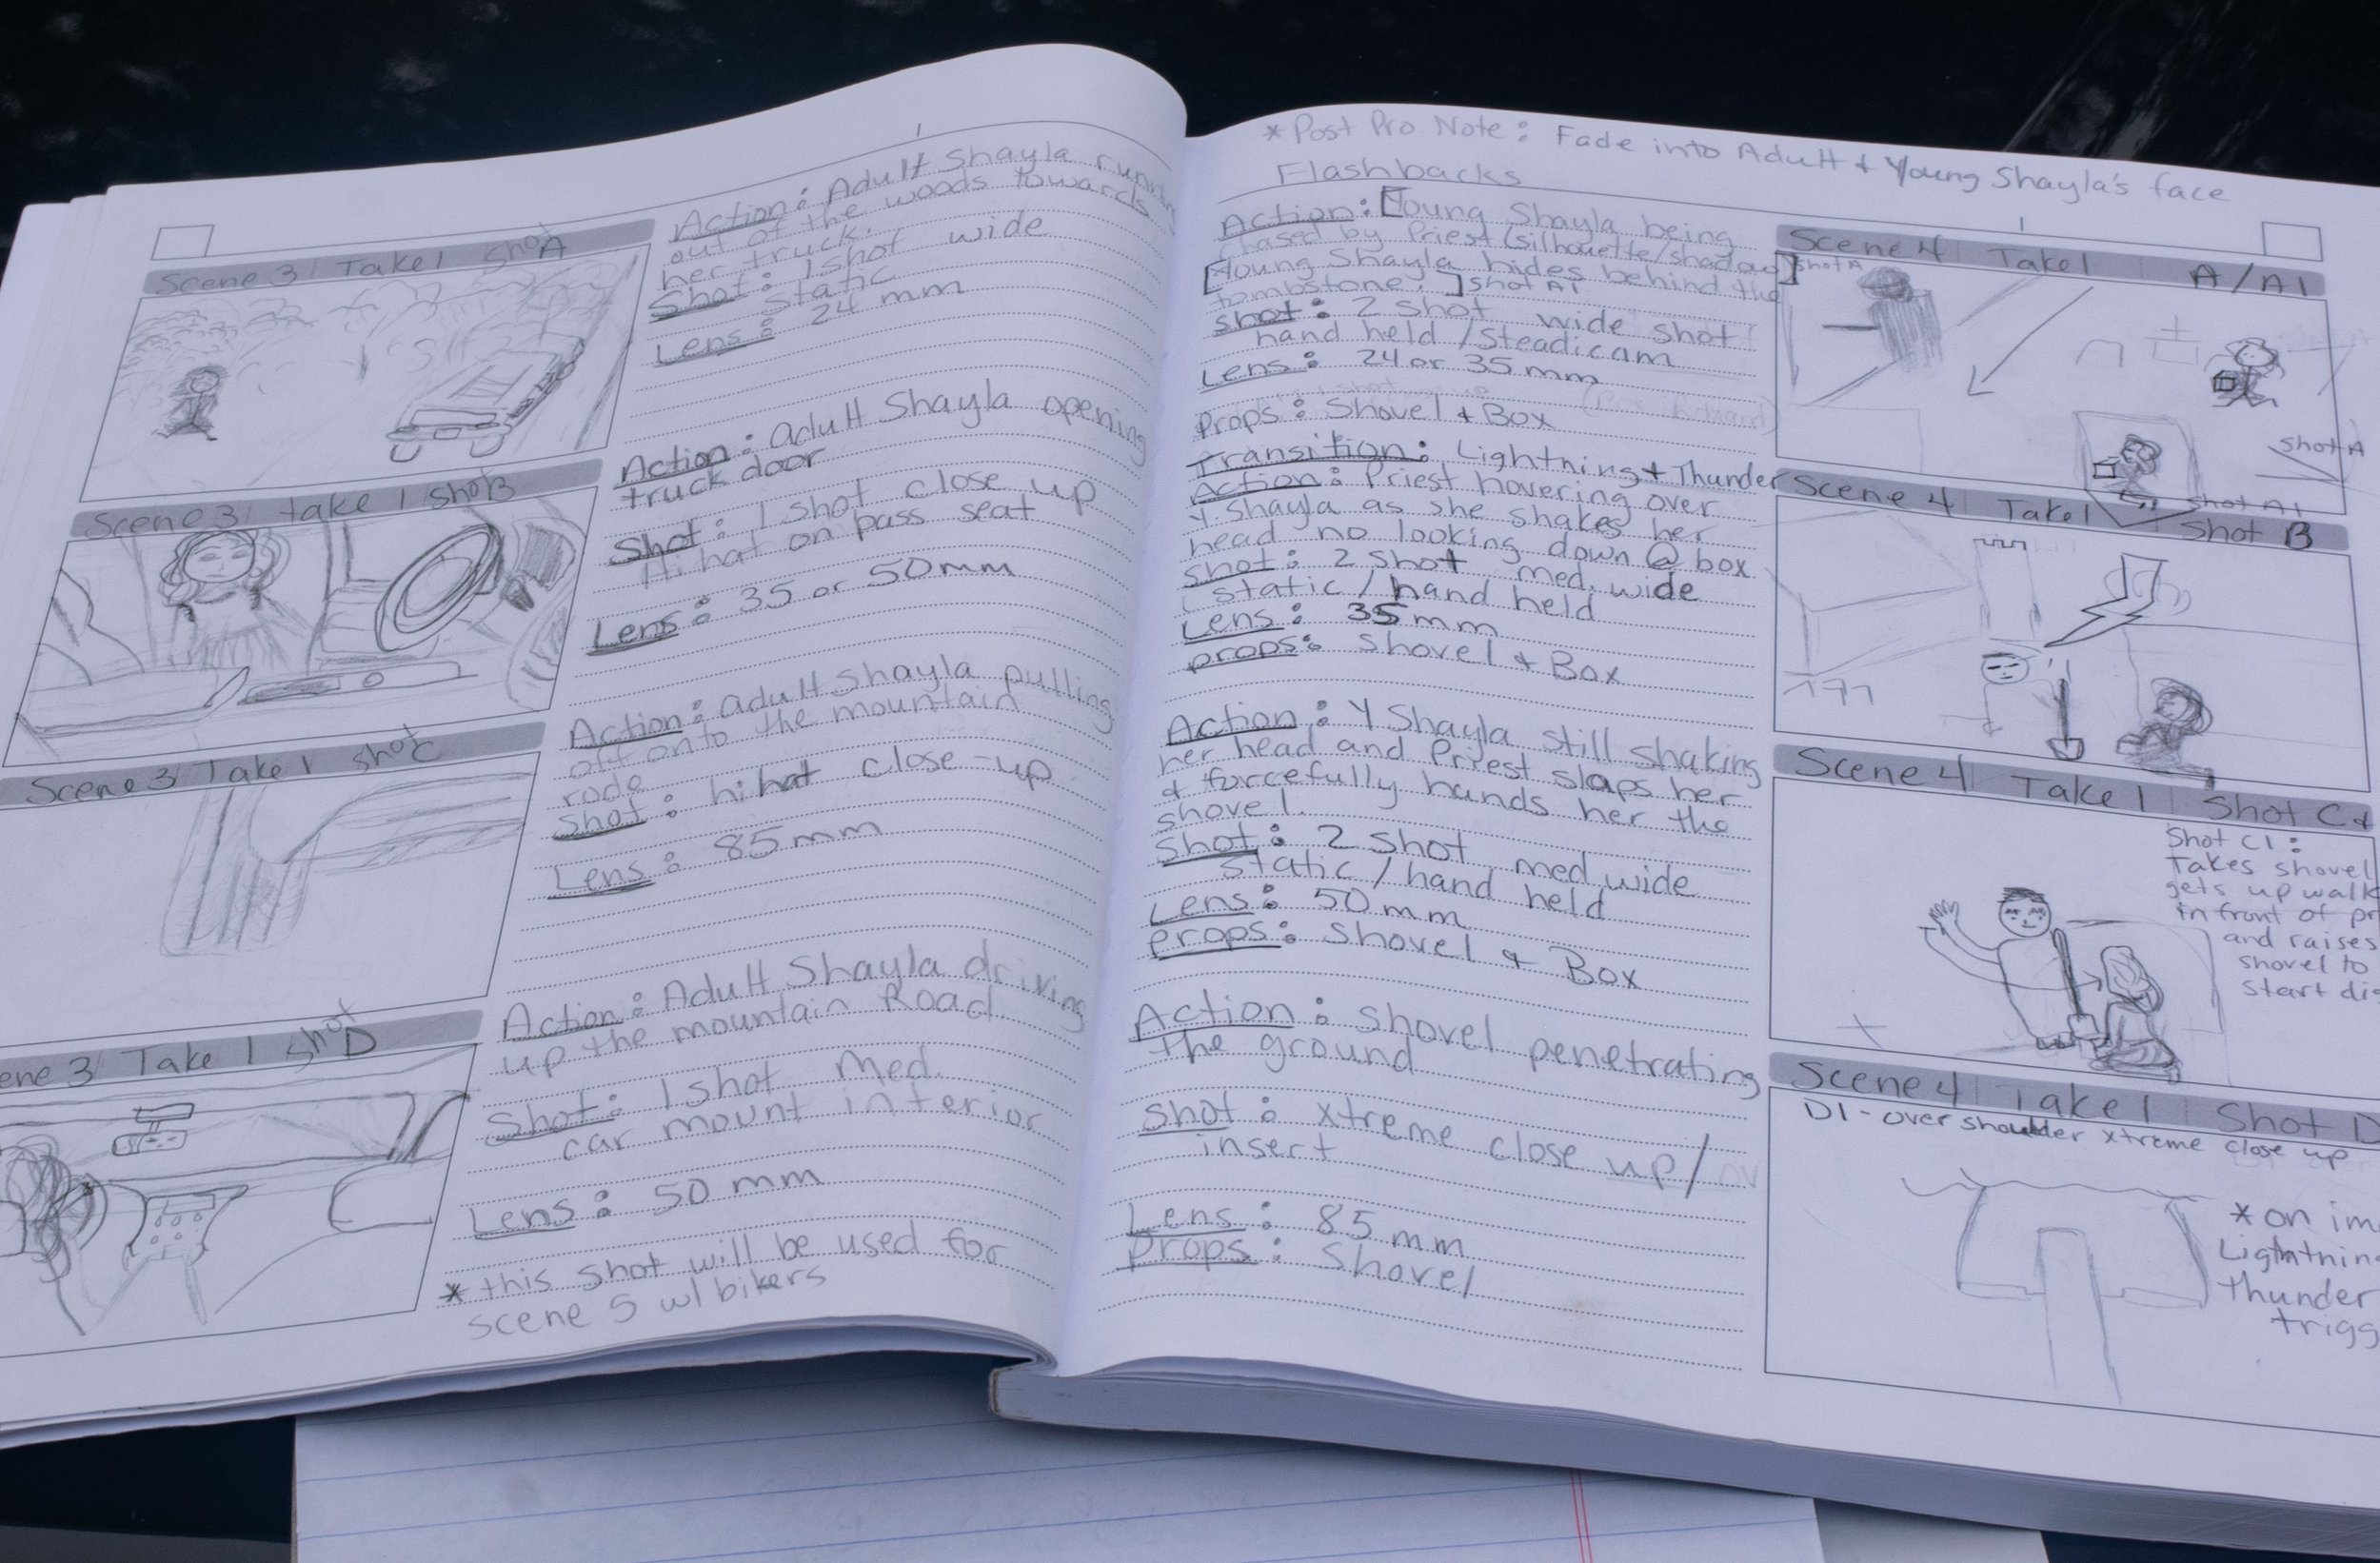 Scene 3 Take 1 Shot A
Action: Adult Shayla
out of the woods towards
her truck.
Shot: 1 shot wide
static
Lens: 24 mm
Scene 3 take 1 shot B
Action: adult Shayla opening
truck door
Shot: 1 shot close up
Hi hat on pass seat
Lens: 35 or 50mm
Scene 3 Take 1 shot C
Action: adult Shayla pulling
off onto the mountain
rode
Shot: hi hat close-up
Lens: 85mm
ene 3 Take 1 shot D
Action: Adult Shayla driving
up the mountain Road
Shot: 1 shot Med.
car mount interior
Lens: 50 mm
* this shot will be used for
scene 5 w/ bikers
* Post Pro Note: Fade into Adult & Young Shayla's face
Flashbacks
Action: [Young Shayla being
chased by Priest (silhouette/shadow)]
[Young Shayla hides behind the
tombstone.] shot A1
Shot: 2 shot wide shot
hand held / Steadicam
Lens: 24 or 35 mm
Props: Shovel & Box
Transition: Lightning + Thunder
Action: Priest hovering over
Y Shayla as she shakes her
head no looking down @ box
Shot: 2 shot med. wide
static / hand held
Lens: 35 mm
props: shovel & Box
Action: Y Shayla still shaking
her head and Priest slaps her
& forcefully hands her the
shovel.
Shot: 2 shot med wide
static / hand held
Lens: 50 mm
props: shovel & Box
Action: shovel penetrating
the ground
Shot: xtreme close up/
insert
Lens: 85 mm
Props: Shovel
Scene 4 Take 1 A/A1
shot A
Shot A
Shot A1
Scene 4 Take 1 Shot B
Scene 4 Take 1 Shot C &
Shot C1:
Takes shovel
gets up walk
in front of pr
and raises
shovel to
start dig
Scene 4 Take 1 Shot D
D1 - over shoulder xtreme close up
* on im
Lightning
thunder
trigg